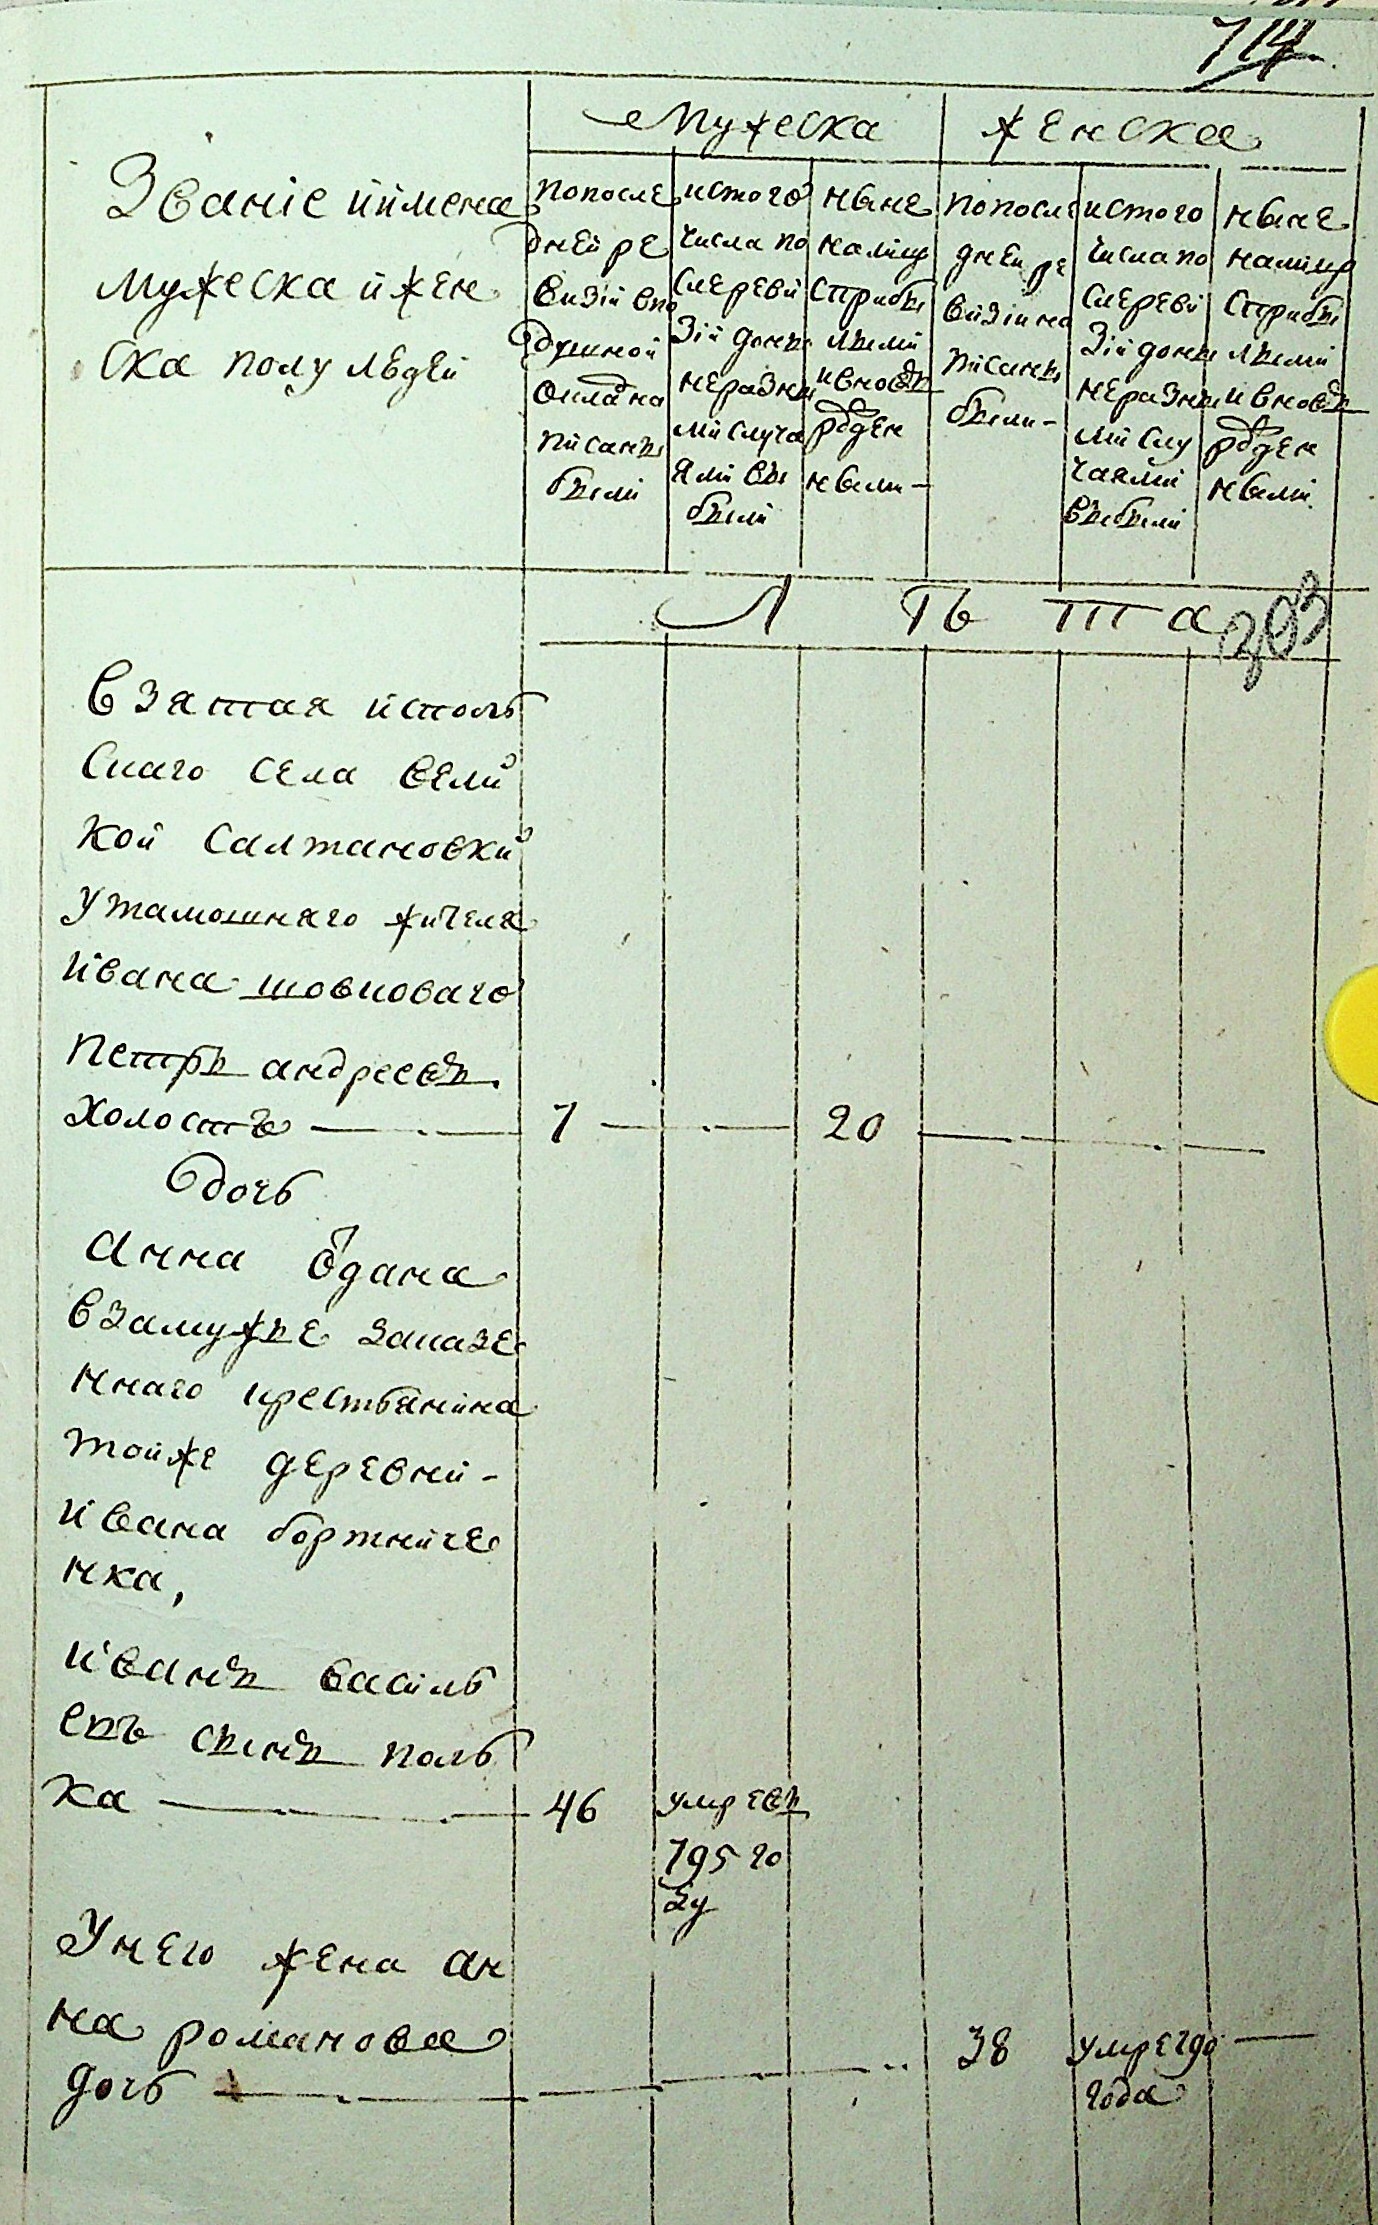 714
Мужеска
женска
Званіе и имена
мужеска и жен
ска полу людей
попосле
дней ре
визіи в по
душной
окладна
писаны
были
ис того
числа по
сле реви
зіи до ны
не разны
ми случа
ями вы
были
ныне
на лицо
с прибы
лыми
и вновь
рожден
ными
по посл
дней ре
визіи на
писаны
были
ис того
числа по
сле реви
зіи до ны
не разны
ми слу
чаями
выбыли
ныне
на лицо
с прибы
лыми
и вновь
рожден
ными
Л ѣ т а
203
взятая и споль
скаго села вели
кой салтановки
у тамошняго жителя
ивана шовковаго
петръ андреевъ
холостъ 7 20
дочь
анна одана
взамужъе за казе
ннаго крестьянина
той же деревни
ивана бортниче
нка,
иванъ василь
евъ сынъ поль
ка 46 умре въ
795 го
ду
У него жена ан
на романова
дочь 38 умре 790
года